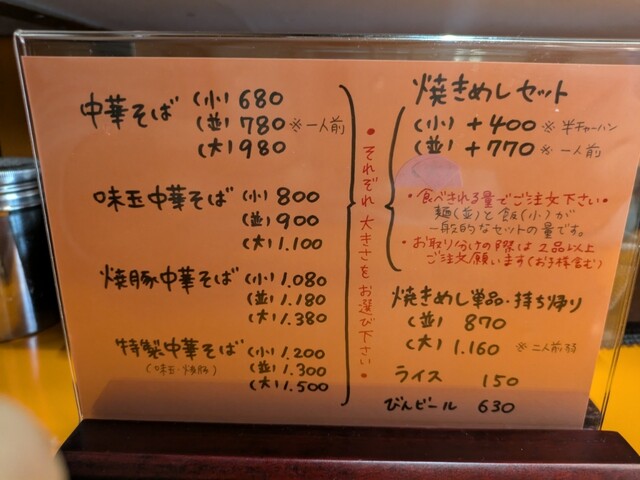 中華そば (小) 680
(並) 780 ※一人前
(大) 980
味玉中華そば (小) 800
(並) 900
(大) 1.100
焼豚中華そば (小) 1.080
(並) 1.180
(大) 1.380
特製中華そば (小) 1.200
(味玉・焼豚) (並) 1.300
(大) 1.500
・それぞれ大きさをお選び下さい・
焼きめしセット
(小) +400 ※半チャーハン
(並) +770 ※一人前
・食べきれる量でご注文下さい・
麺(並)と飯(小)が
一般的なセットの量です。
・お取り分けの際は2品以上
ご注文願います(お子様含む)
焼きめし単品・持ち帰り
(並) 870
(大) 1.160 ※二人前弱
ライス 150
びんビール 630